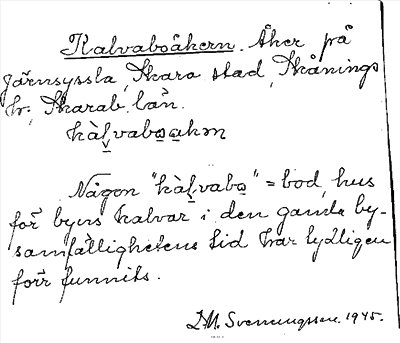 Kalvaboåkern. Åker på
Järnsyssla, Skara stad, Skånings
hr, Skarab. län.
kàl̬vabo̱a̱kɷn
Någon "kàl̬vabo̱" = bod, hus
för byns kalvar i den gamla by-
samfällighetens tid har tydligen
förr funnits.
D.A. Svenningsson. 1945.